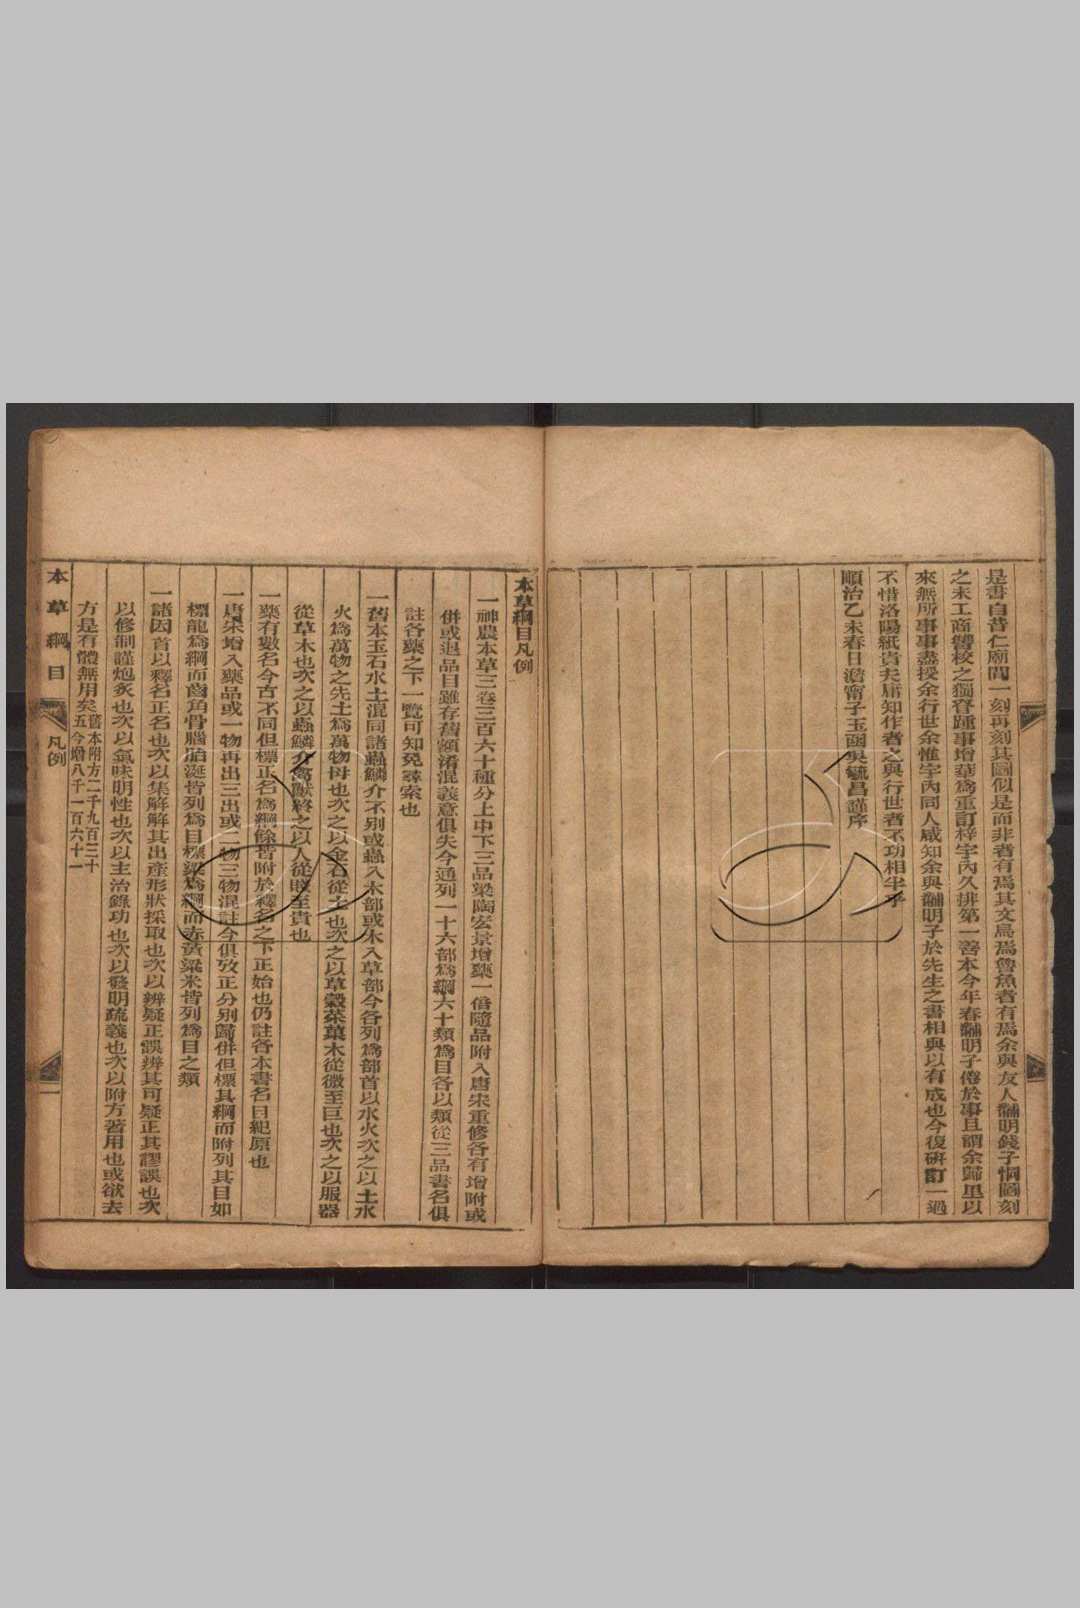 是書自昔仁廟間一刻再刻其圖似是而非者有焉其文烏焉魯魚者有焉余與友人黼明錢子悯圖刻
之未工商讐校之獨眘踵事增華為重訂梓宇內久排第一善本今年春黼明子倦於事且謂余歸里以
來無所事事盡授余行世余惟宇內同人咸知余與黼明子於先生之書相與以有成也今復研訂一過
不惜洛陽紙貴夫庸知作者之與行世者不功相半乎
順治乙未春日澹甯子玉函吳毓昌謹序
本草綱目凡例
一神農本草三卷三百六十種分上中下三品梁陶宏景增藥一倍隨品附入唐宋重修各有增附或
併或退品目雖存舊額淆混義意俱失今通列一十六部為綱六十類為目各以類從三品書名俱
註各藥之下一覽可知免尋索也
一舊本玉石水土混同諸蟲鱗介不別或蟲入木部或木入草部今各列為部首以水火次之以土水
火為萬物之先土為萬物母也次之以金石從土也次之以草穀菜菓木從微至巨也次之以服器
從草木也次之以蟲鱗介禽獸終之以人從賤至貴也
一藥有數名今古不同但標正名為綱餘皆附於釋名之下正始也仍註各本書名目紀原也
一唐宋增入藥品或一物再出三出或二物三物混註今俱攷正分別歸併但標其綱而附列其目如
標龍為綱而齒角骨腦胎涎皆列為目標粱為綱而赤黃粱米皆列為目之類
一諸因首以釋名正名也次以集解解其出產形狀採取也次以辨疑正誤辨其可疑正其謬誤也次
以修制謹炮炙也次以氣味明性也次以主治錄功也次以發明疏義也次以附方著用也或欲去
方是有體無用矣舊本附方二千九百三十
五今增八千一百六十一
本草綱目 凡例 一